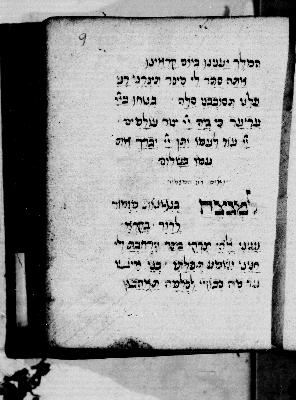 המלך יעננו ביום קראינו
אתה סתר לי מצר תצרני רני
פלט תסובבני סלה בטחו ביי
עדי עד כי ביה יי צור עולמים
יי עוז לעמו יתן יי יברך את
עמו בשלום
למנצח בנגינות מזמור
לדוד בקראי
ענני אלהי צדקי בצר הרחבת לי
חנני ושמע תפלתי בני איש
עד מה כבודי לכלמה תאהבון